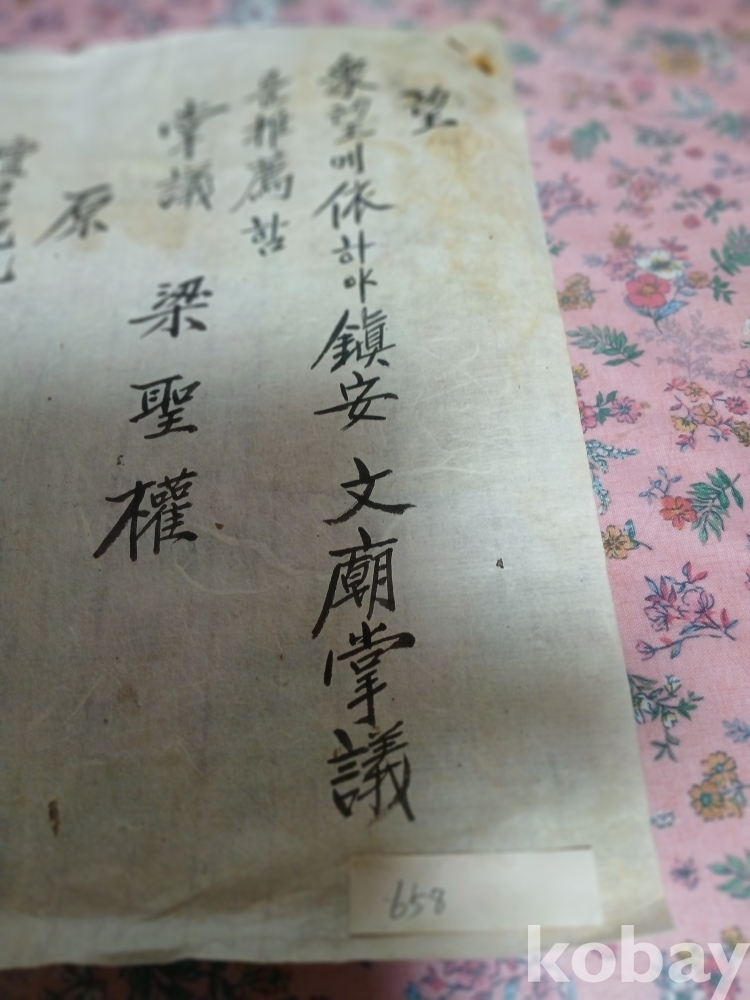 望
衆望에依하야鎭安 文廟掌議
를推薦함
掌議 梁聖權
原
658
kobay